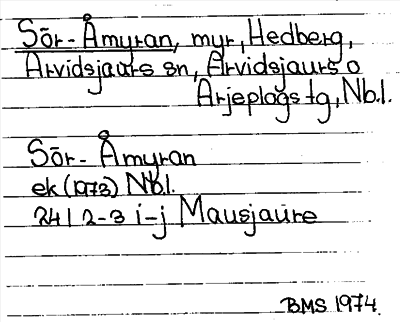 Sör-Åmyran, myr, Hedberg,
Arvidsjaurs sn, Arvidsjaurs o
Arjeplogs tg, Nb.l.
Sör-Åmyran
ek (1973) Nb.l.
24I 2-3 i-j Mausjaure
BMS 1974.